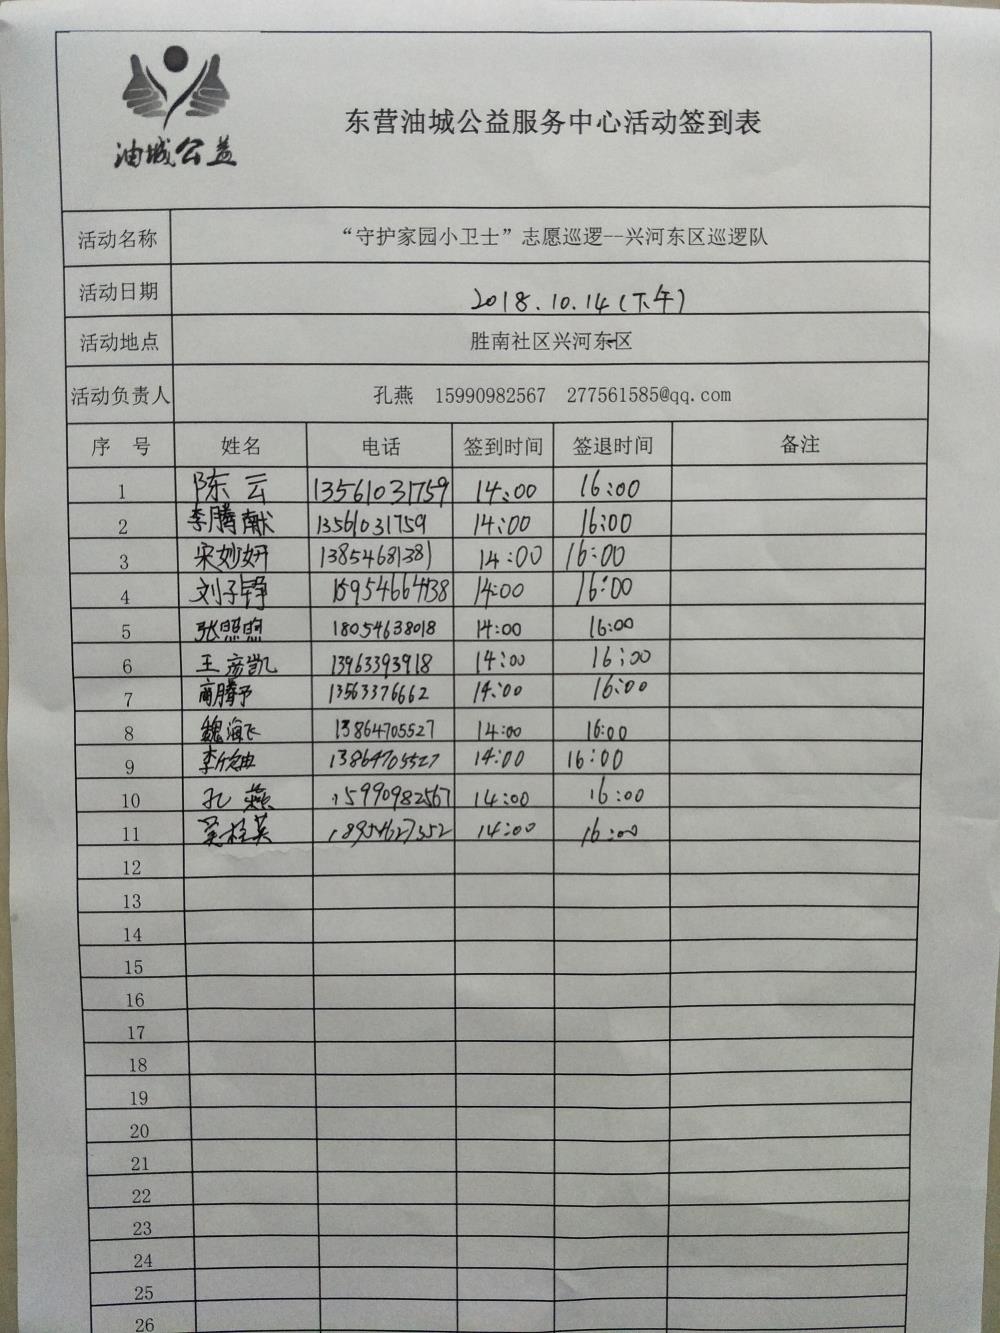 油城公益
东营油城公益服务中心活动签到表
活动名称 “守护家园小卫士”志愿巡逻--兴河东区巡逻队
活动日期 2018.10.14(下午)
活动地点 胜南社区兴河东区
活动负责人 孔燕 15990982567 277561585@qq.com
序号 姓名 电话 签到时间 签退时间 备注
1 陈云 13561031759 14:00 16:00
2 李腾献 13561031759 14:00 16:00
3 宋妙妍 13854681381 14:00 16:00
4 刘子铮 15954664738 14:00 16:00
5 张照照 18054638018 14:00 16:00
6 王彦凯 13963393918 14:00 16:00
7 商腾予 13563376662 14:00 16:00
8 魏海飞 13864705527 14:00 16:00
9 李欣 13864705527 14:00 16:00
10 孔燕 15990982567 14:00 16:00
11 桂英 18954627352 14:00 16:00
12
13
14
15
16
17
18
19
20
21
22
23
24
25
26